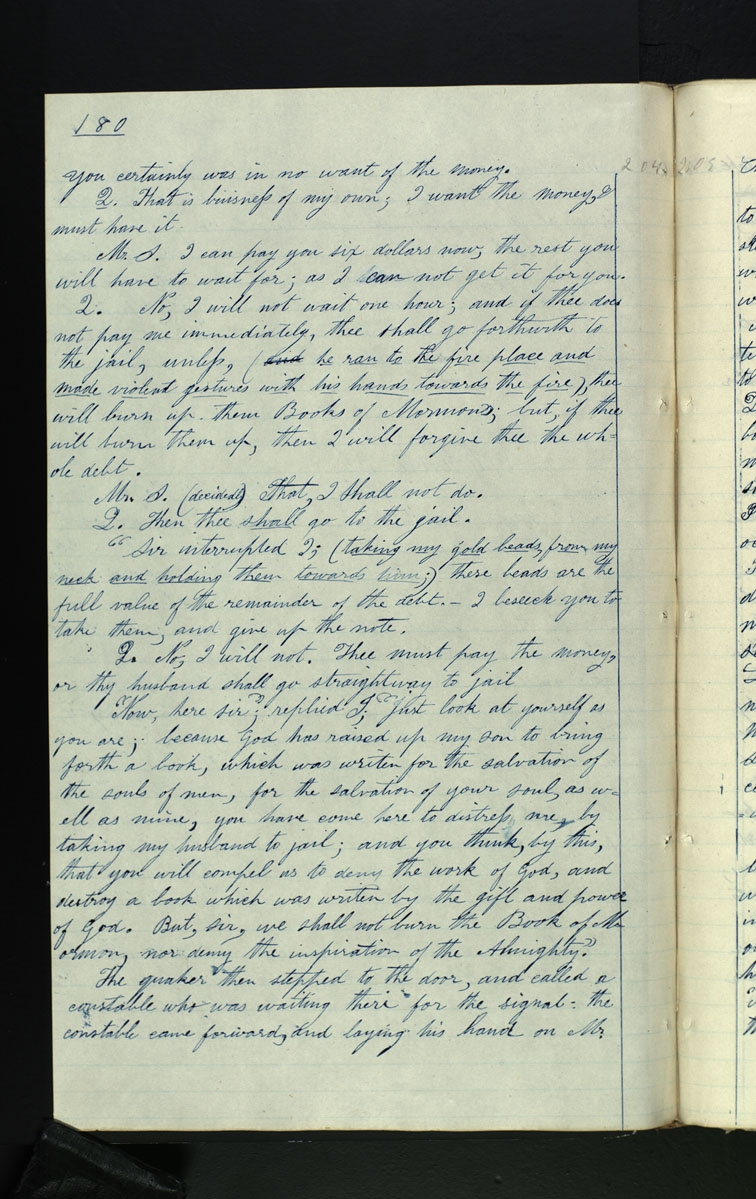 180
204. 205
you certainly was in no want of the money.
Q. That is buisness of my own; I want the money, &
must have it.
Mr. S. I can pay you six dollars now; the rest you
will have to wait for; as I can not get it for you.
Q. No, I will not wait one hour; and if thee does
not pay me immediately, thee shall go forthwith to
the jail, unless, (and he ran to the fire place and
made violent gestures with his hands towards the fire), thee
will burn up them Books of Mormon; but, if thee
will burn them up, then I will forgive thee the wh=
ole debt.
Mr. S. (decidedly) That, I shall not do.
Q. Then thee shall go to the jail.
"Sir interrupted I; (taking my gold beads, from my
neck and holding them towards him;) these beads are the
full value of the remainder of the debt. — I beseeck you to
take them, and give up the note.
Q. No, I will not. Thee must pay the money,
or thy husband shall go straightway to jail
Now, here sir"; replied I; "Just look at yourself as
you are; because God has raised up my son to bring
forth a book, which was writen for the salvation of
the souls of men, for the salvation of your soul, as w=
ell as mine, you have come here to distress me, by
taking my husband to jail; and you think, by this,
that you will compel us to deny the work of God, and
destroy a book which was writen by the gift and power
of God. But, sir, we shall not burn the Book of M
ormon, nor deny the inspiration of the Almighty."
The quaker then stepped to the door, and called a
constable who was waiting there for the signal: the
constable came forward, and laying his hand on Mr.